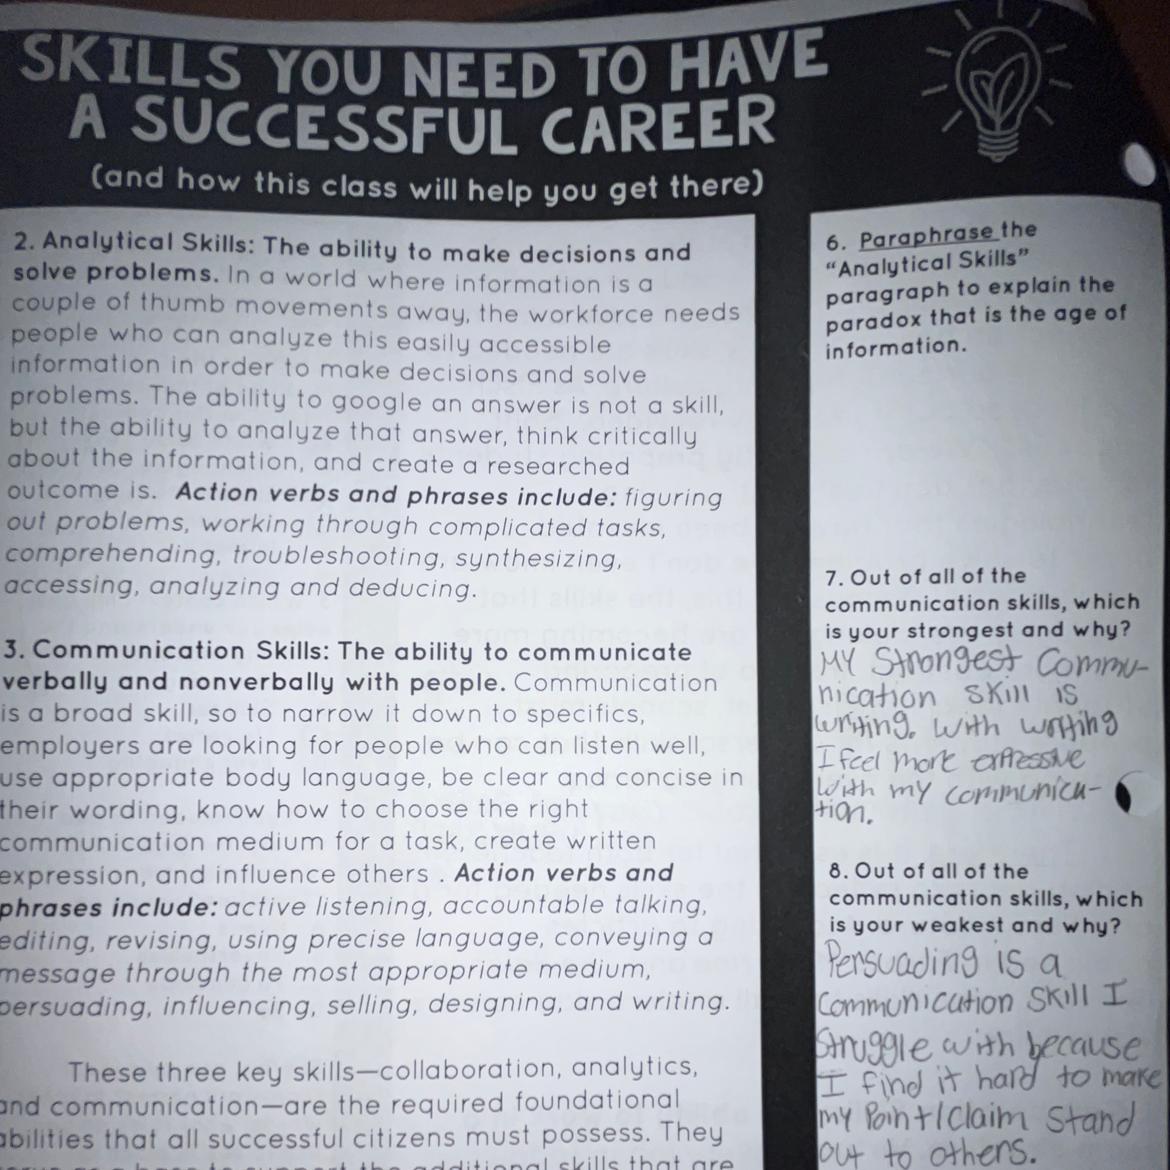 SKILLS YOU NEED TO HAVE
A SUCCESSFUL CAREER
(and how this class will help you get there)
2. Analytical Skills: The ability to make decisions and
solve problems. In a world where information is a
couple of thumb movements away, the workforce needs
people who can analyze this easily accessible
information in order to make decisions and solve
problems. The ability to google an answer is not a skill,
but the ability to analyze that answer, think critically
about the information, and create a researched
outcome is. Action verbs and phrases include: figuring
out problems, working through complicated tasks,
comprehending, troubleshooting, synthesizing,
accessing, analyzing and deducing.
3. Communication Skills: The ability to communicate
verbally and nonverbally with people. Communication
is a broad skill, so to narrow it down to specifics,
employers are looking for people who can listen well,
use appropriate body language, be clear and concise in
their wording, know how to choose the right
communication medium for a task, create written
expression, and influence others . Action verbs and
phrases include: active listening, accountable talking,
editing, revising, using precise language, conveying a
message through the most appropriate medium,
persuading, influencing, selling, designing, and writing.
These three key skills—collaboration, analytics,
and communication—are the required foundational
abilities that all successful citizens must possess. They
the additional skills that are
6. Paraphrase the
"Analytical Skills"
paragraph to explain the
paradox that is the age of
information.
7. Out of all of the
communication skills, which
is your strongest and why?
MY Strongest Commu-
nication skill is
writing. With writing
I feel more
with my communica-
tion.
8. Out of all of the
communication skills, which
is your weakest and why?
Persuading is a
Communication Skill I
Struggle with because
I find it hard to make
my Point/Claim Stand
out to others.